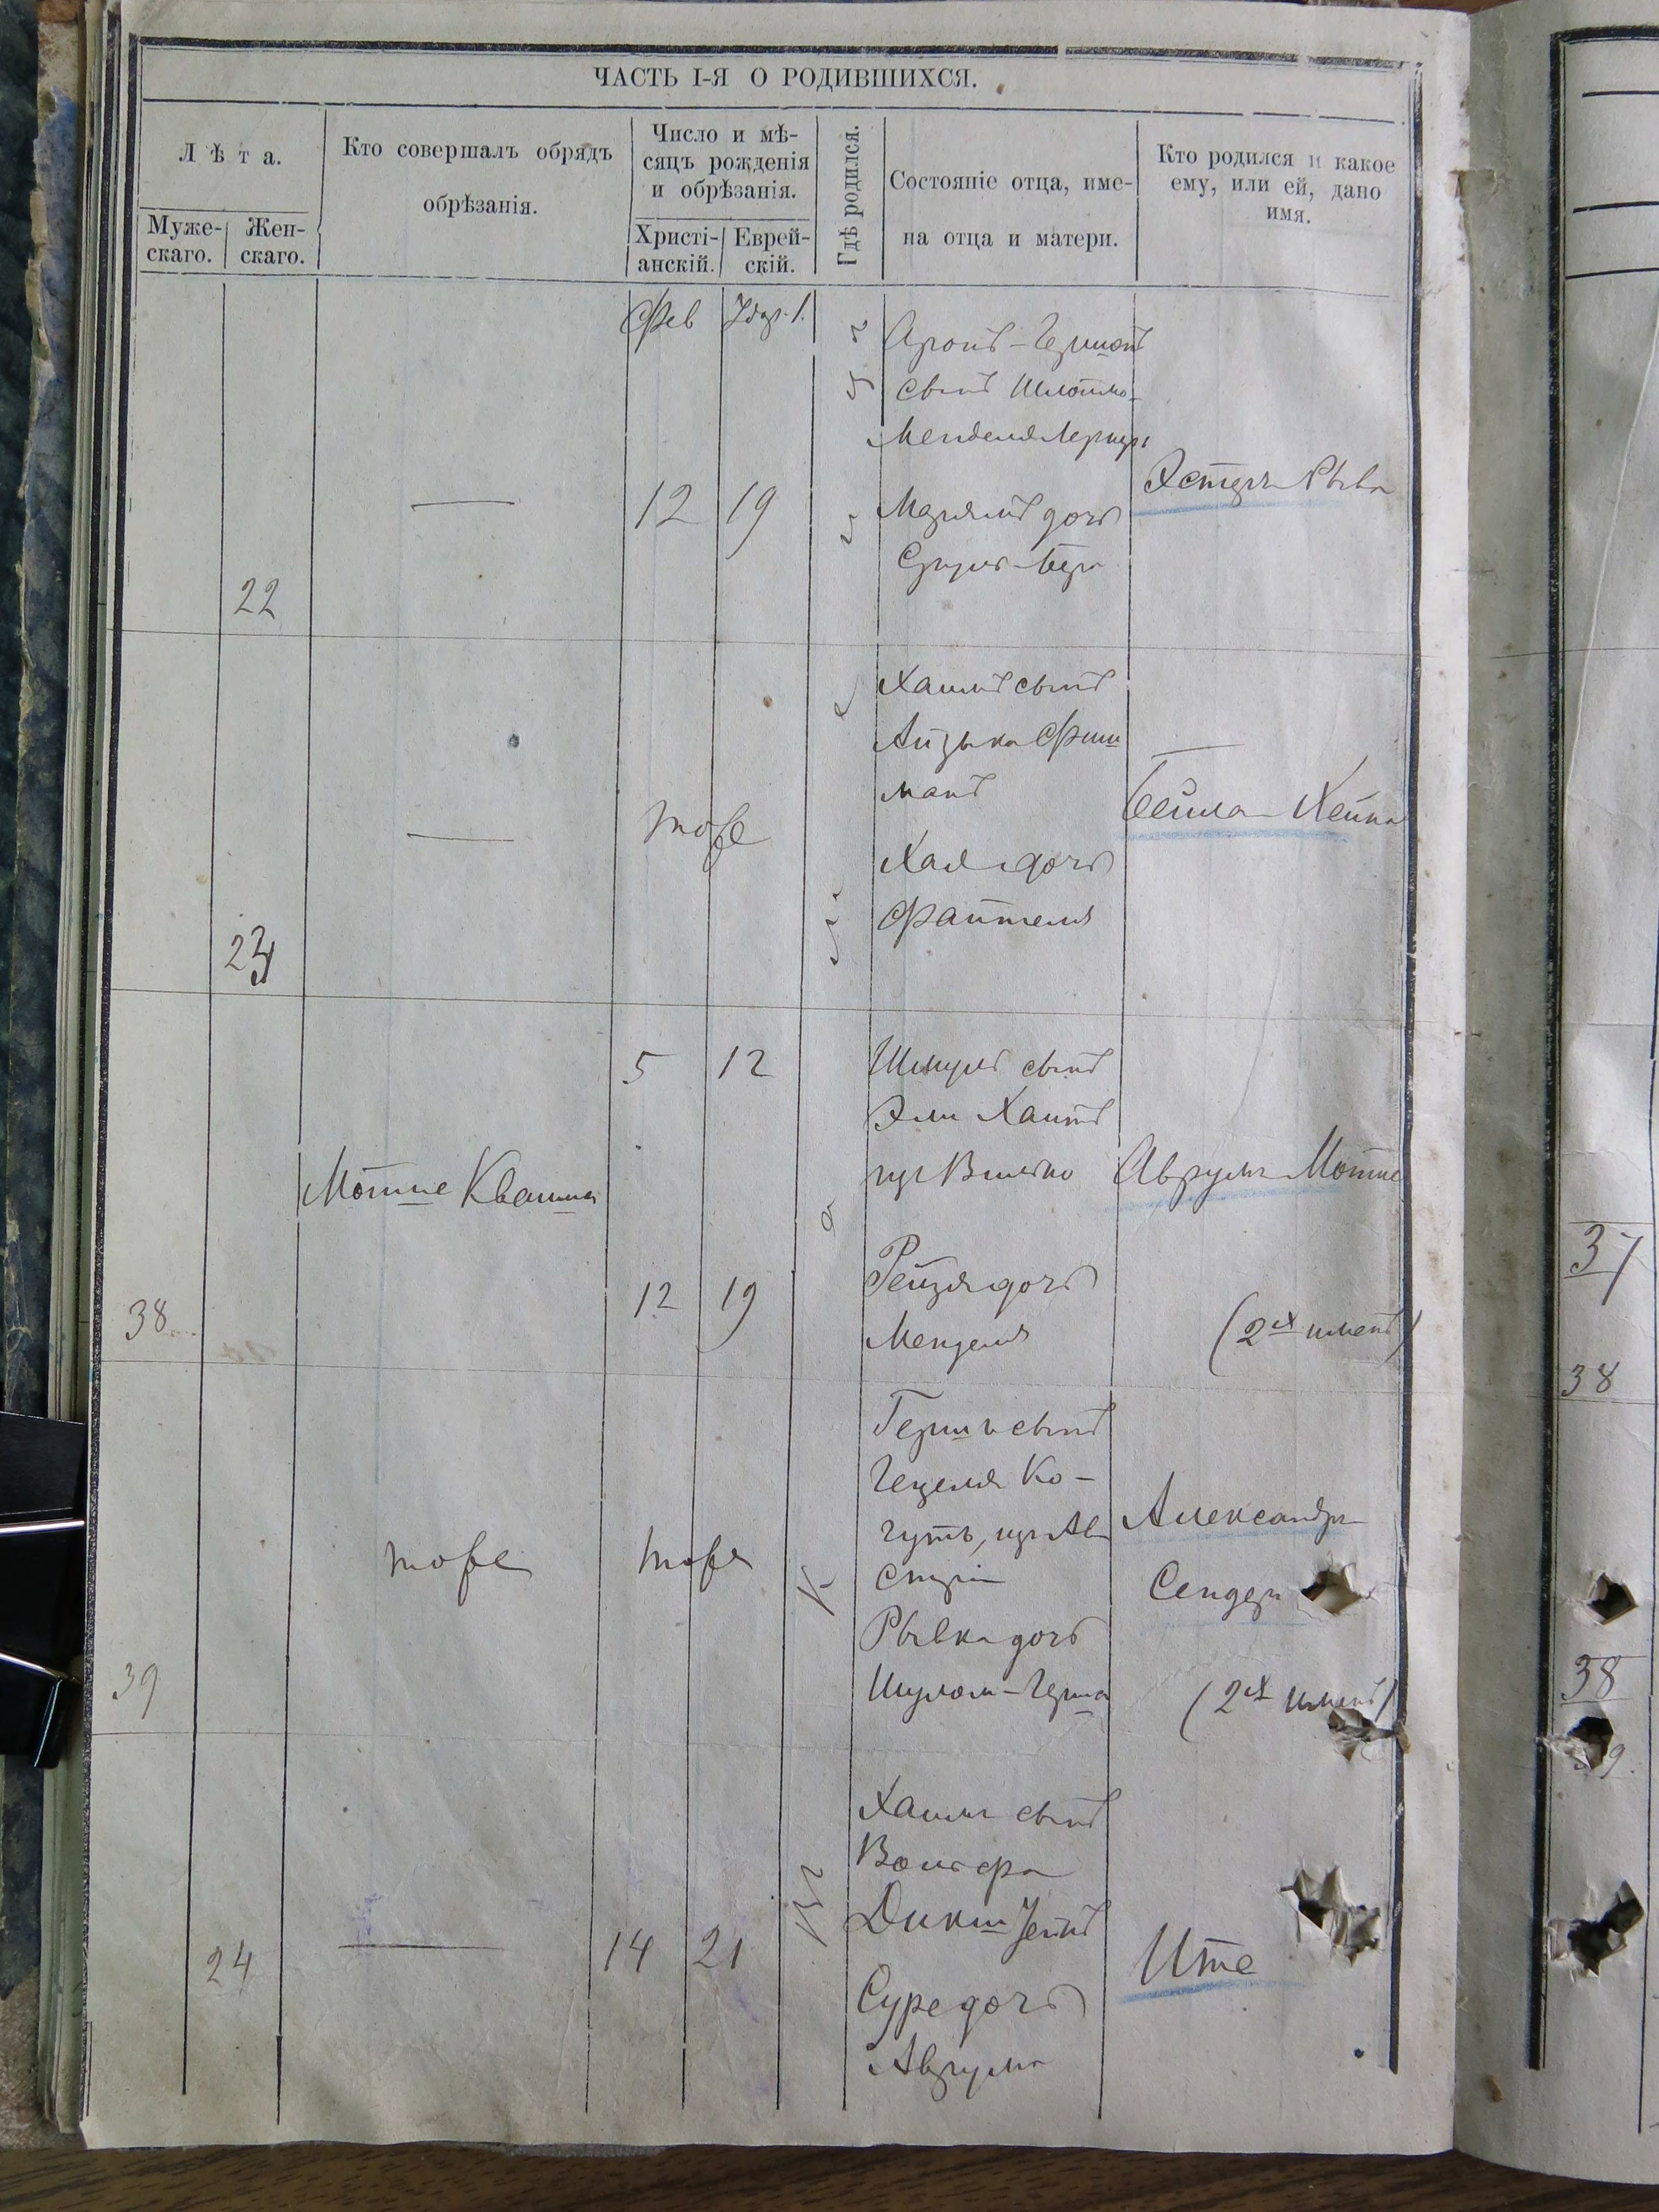 ЧАСТЬ I-Я О РОДИВШИХСЯ.
Лѣта.
Муже-
скаго.
Жен-
скаго.
Кто совершалъ обрядъ
обрѣзанія.
Число и мѣ-
сяцъ рожденія
и обрѣзанія.
Христі-
анскій.
Еврей-
скій.
Гдѣ родился.
Состояніе отца, име-
на отца и матери.
Кто родился и какое
ему, или ей, дано
имя.
Фев
22
—
12
19
Аронъ-Гершонъ
сынъ Шлоймо-
Менделя
Марьямъ дочь
Эстеръ Рыва
23
—
тоже
Хаимъ сынъ
Айзыка Фиш
манъ
Хая дочь
Файтеля
Бейла Хейна
38
Мотше Квашна
5
12
12
19
Шмуль сынъ
Эли Хаимъ
Рейзя дочь
Менделя
Аврумъ Мотше
(2хъ именъ)
39
тоже
тоже
Гершъ сынъ
Гецеля Ко-
гутъ, изъ Ав
стріи
Рывка дочь
Шулом-Герша
Александръ
Сендеръ
(2хъ именъ)
24
—
14
21
Хаимъ сынъ
Вольфа
Дикштейнъ
Суре дочь
Аврума
Ите
37
38
38
9.